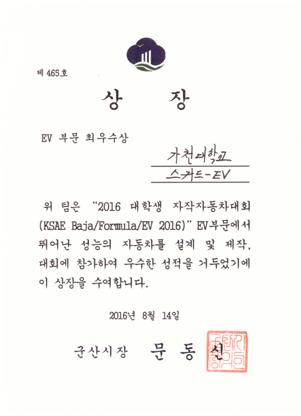 제 465호
상 장
EV 부문 최우수상
가천대학교
스카드-EV
위 팀은 "2016 대학생 자작자동차대회
(KSAE Baja/Formula/EV 2016)" EV부문에서
뛰어난 성능의 자동차를 설계 및 제작,
대회에 참가하여 우수한 성적을 거두었기에
이 상장을 수여합니다.
2016년 8월 14일
군산시장 문 동 신